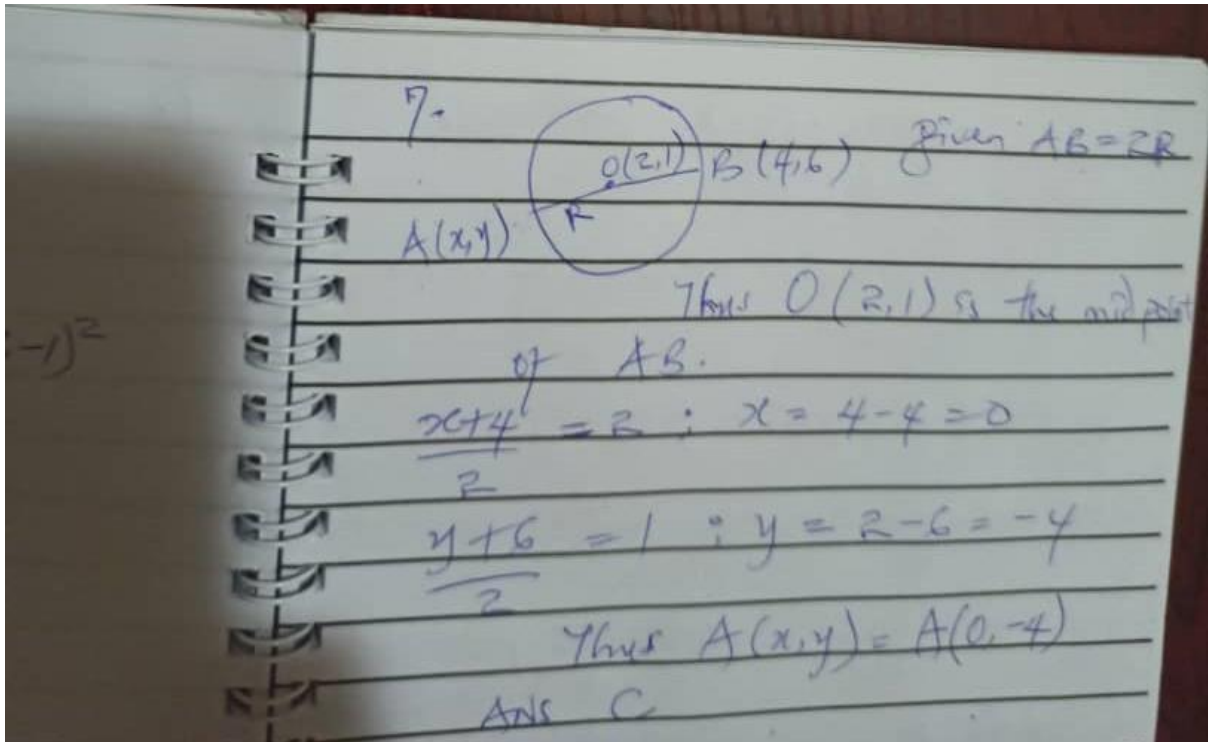 7.
O(2,1) B(4,6) given AB=2R
A(x,y) R
Thus O(2,1) is the midpoint
of AB.
x+4/2 = 2 ; x = 4-4=0
y+6/2 = 1 ; y = 2-6=-4
Thus A(x,y) = A(0,-4)
ANS C
-1)²